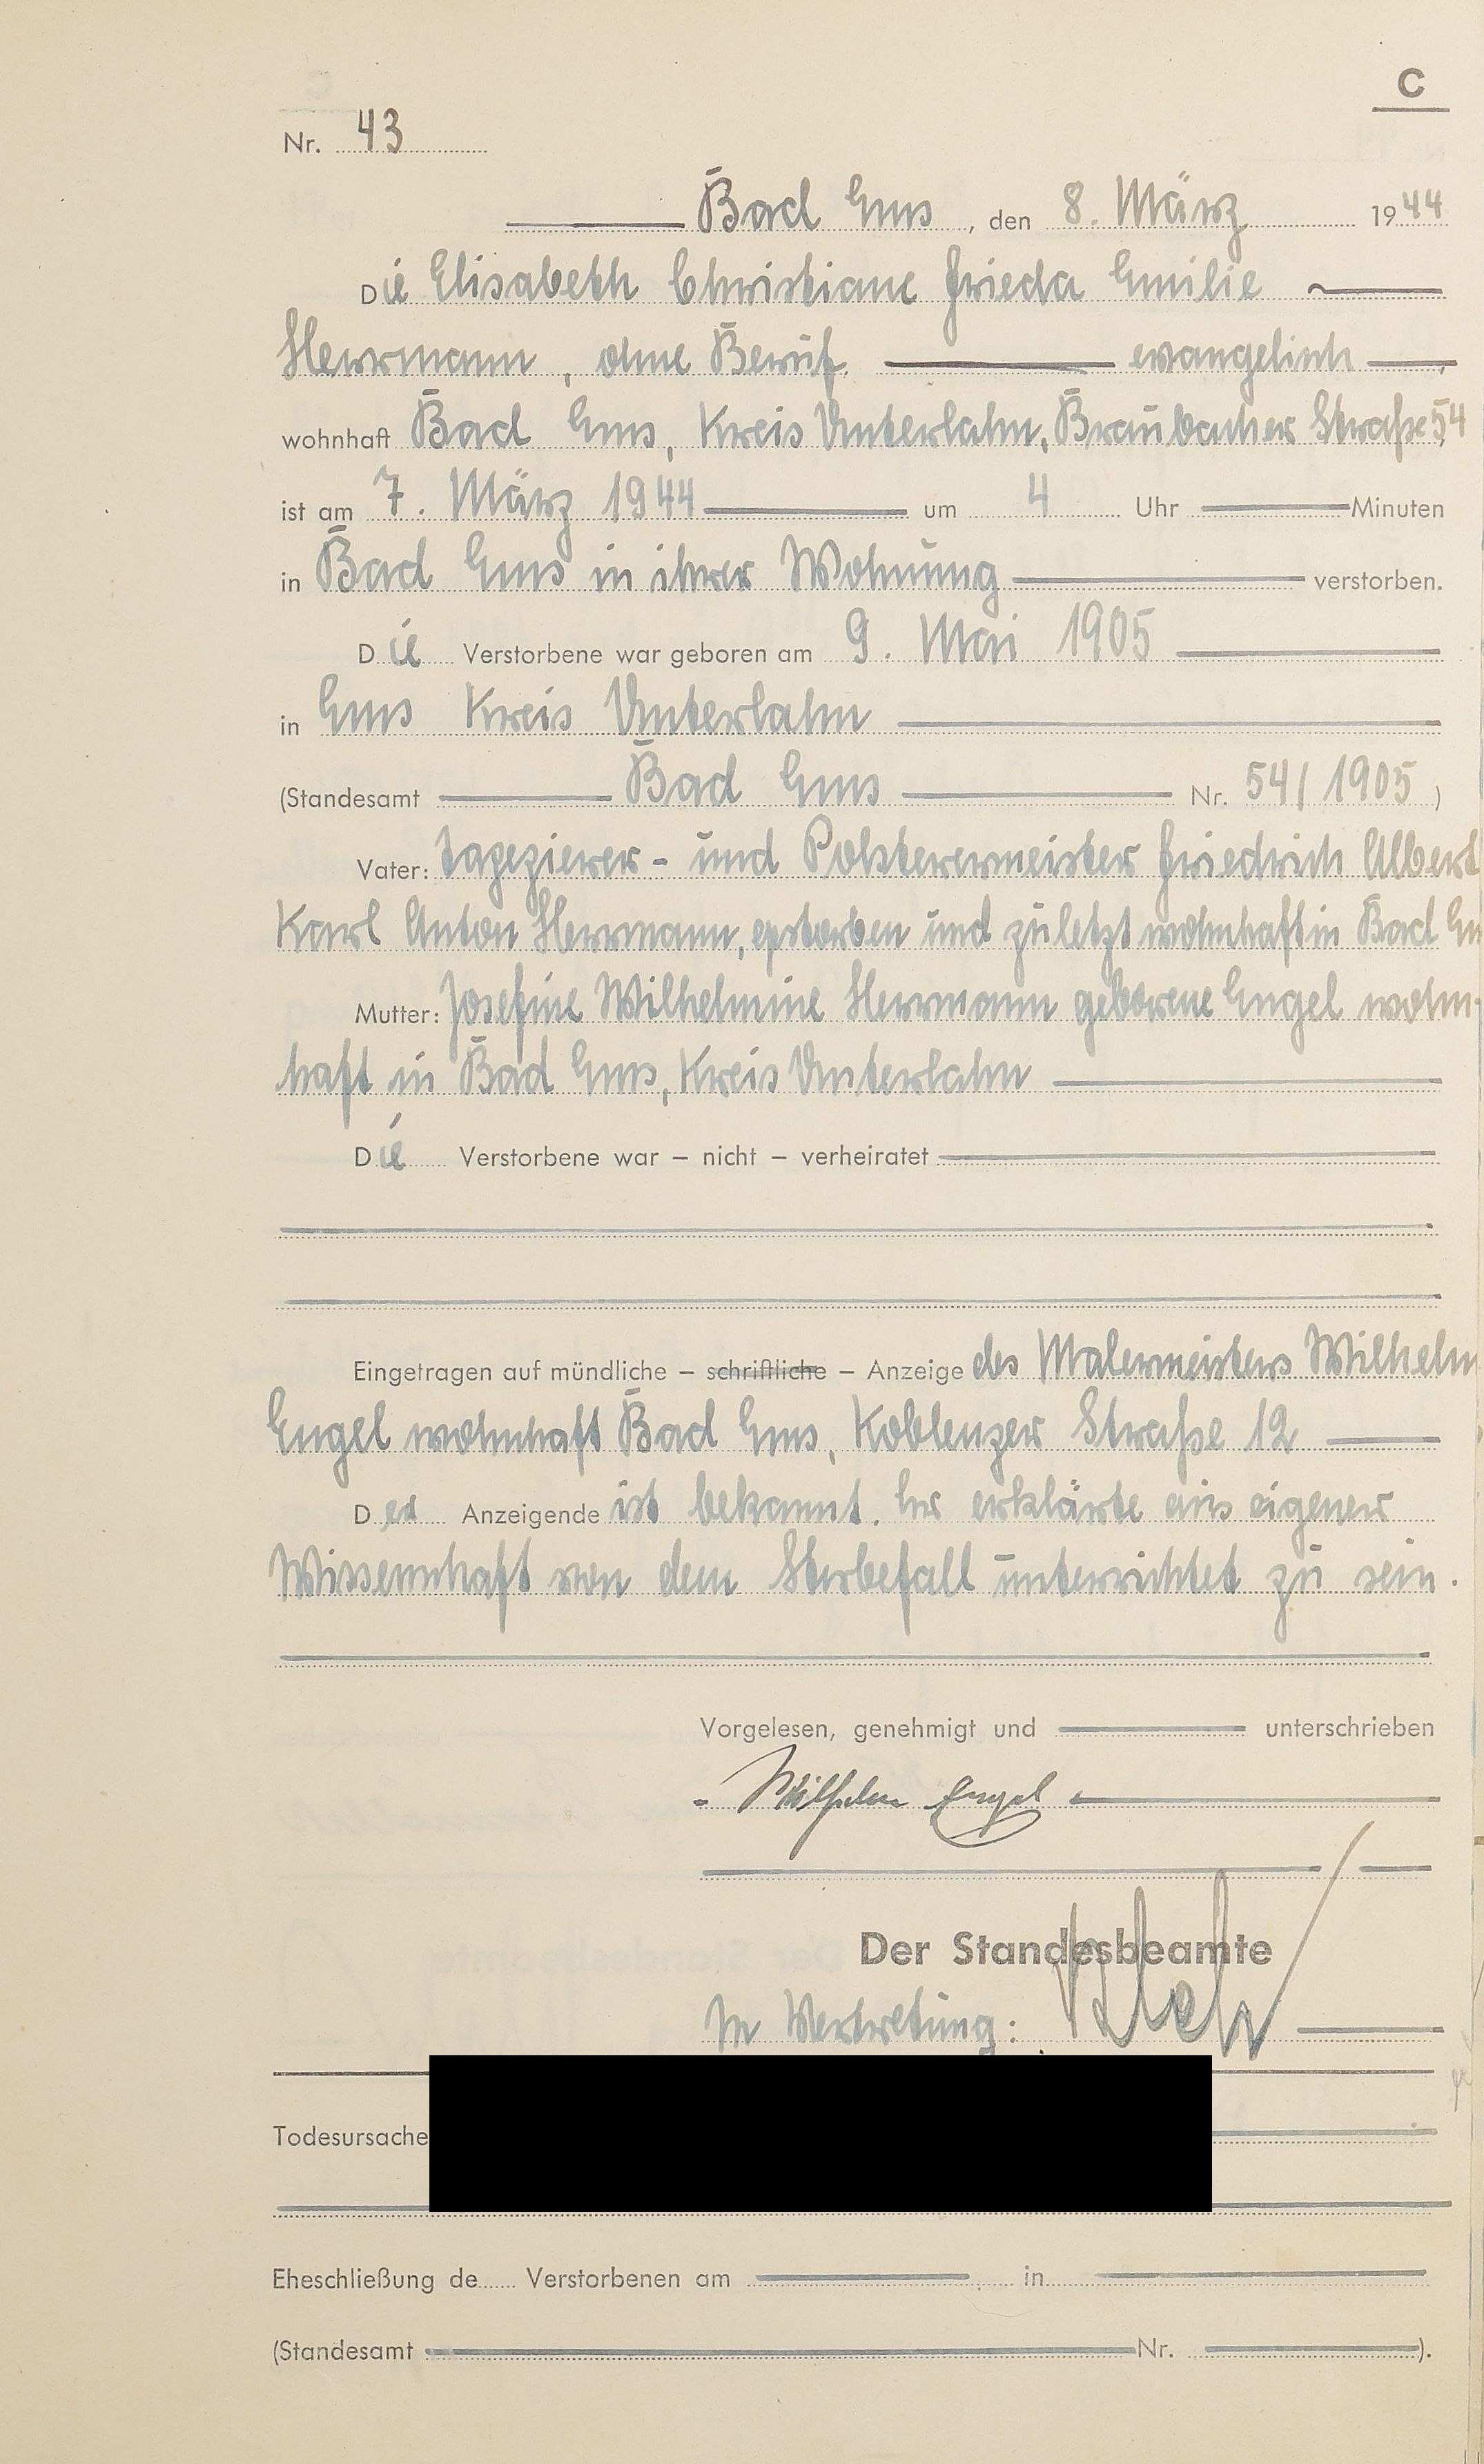 C
Nr. 43
Bad Ems, den 8. März 1944
Die Elisabeth Christiane Frieda Emilie
Herrmann, ohne Beruf evangelisch,
wohnhaft Bad Ems, Kreis Unterlahn, Braubacher Straße 54,
ist am 7. März 1944 um 4 Uhr Minuten
in Bad Ems in ihrer Wohnung verstorben.
Die Verstorbene war geboren am 9. Mai 1905
in Ems Kreis Unterlahn
(Standesamt Bad Ems Nr. 54/1905)
Vater: Tapezierer- und Polsterermeister Friedrich Albert
Karl Anton Herrmann, verstorben und zuletzt wohnhaft in Bad Em
Mutter: Josefine Wilhelmine Herrmann geborene Engel wohn-
haft in Bad Ems, Kreis Unterlahn
Die Verstorbene war – nicht – verheiratet
Eingetragen auf mündliche – schriftliche – Anzeige des Malermeisters Wilhelm
Engel wohnhaft Bad Ems, Koblenzer Straße 12
Der Anzeigende ist bekannt. Er erklärte aus eigener
Wissenschaft von dem Sterbefall unterrichtet zu sein.
Vorgelesen, genehmigt und unterschrieben
Wilhelm Engel
Der Standesbeamte
In Vertretung:
Todesursache
Eheschließung de Verstorbenen am in
(Standesamt Nr. ).